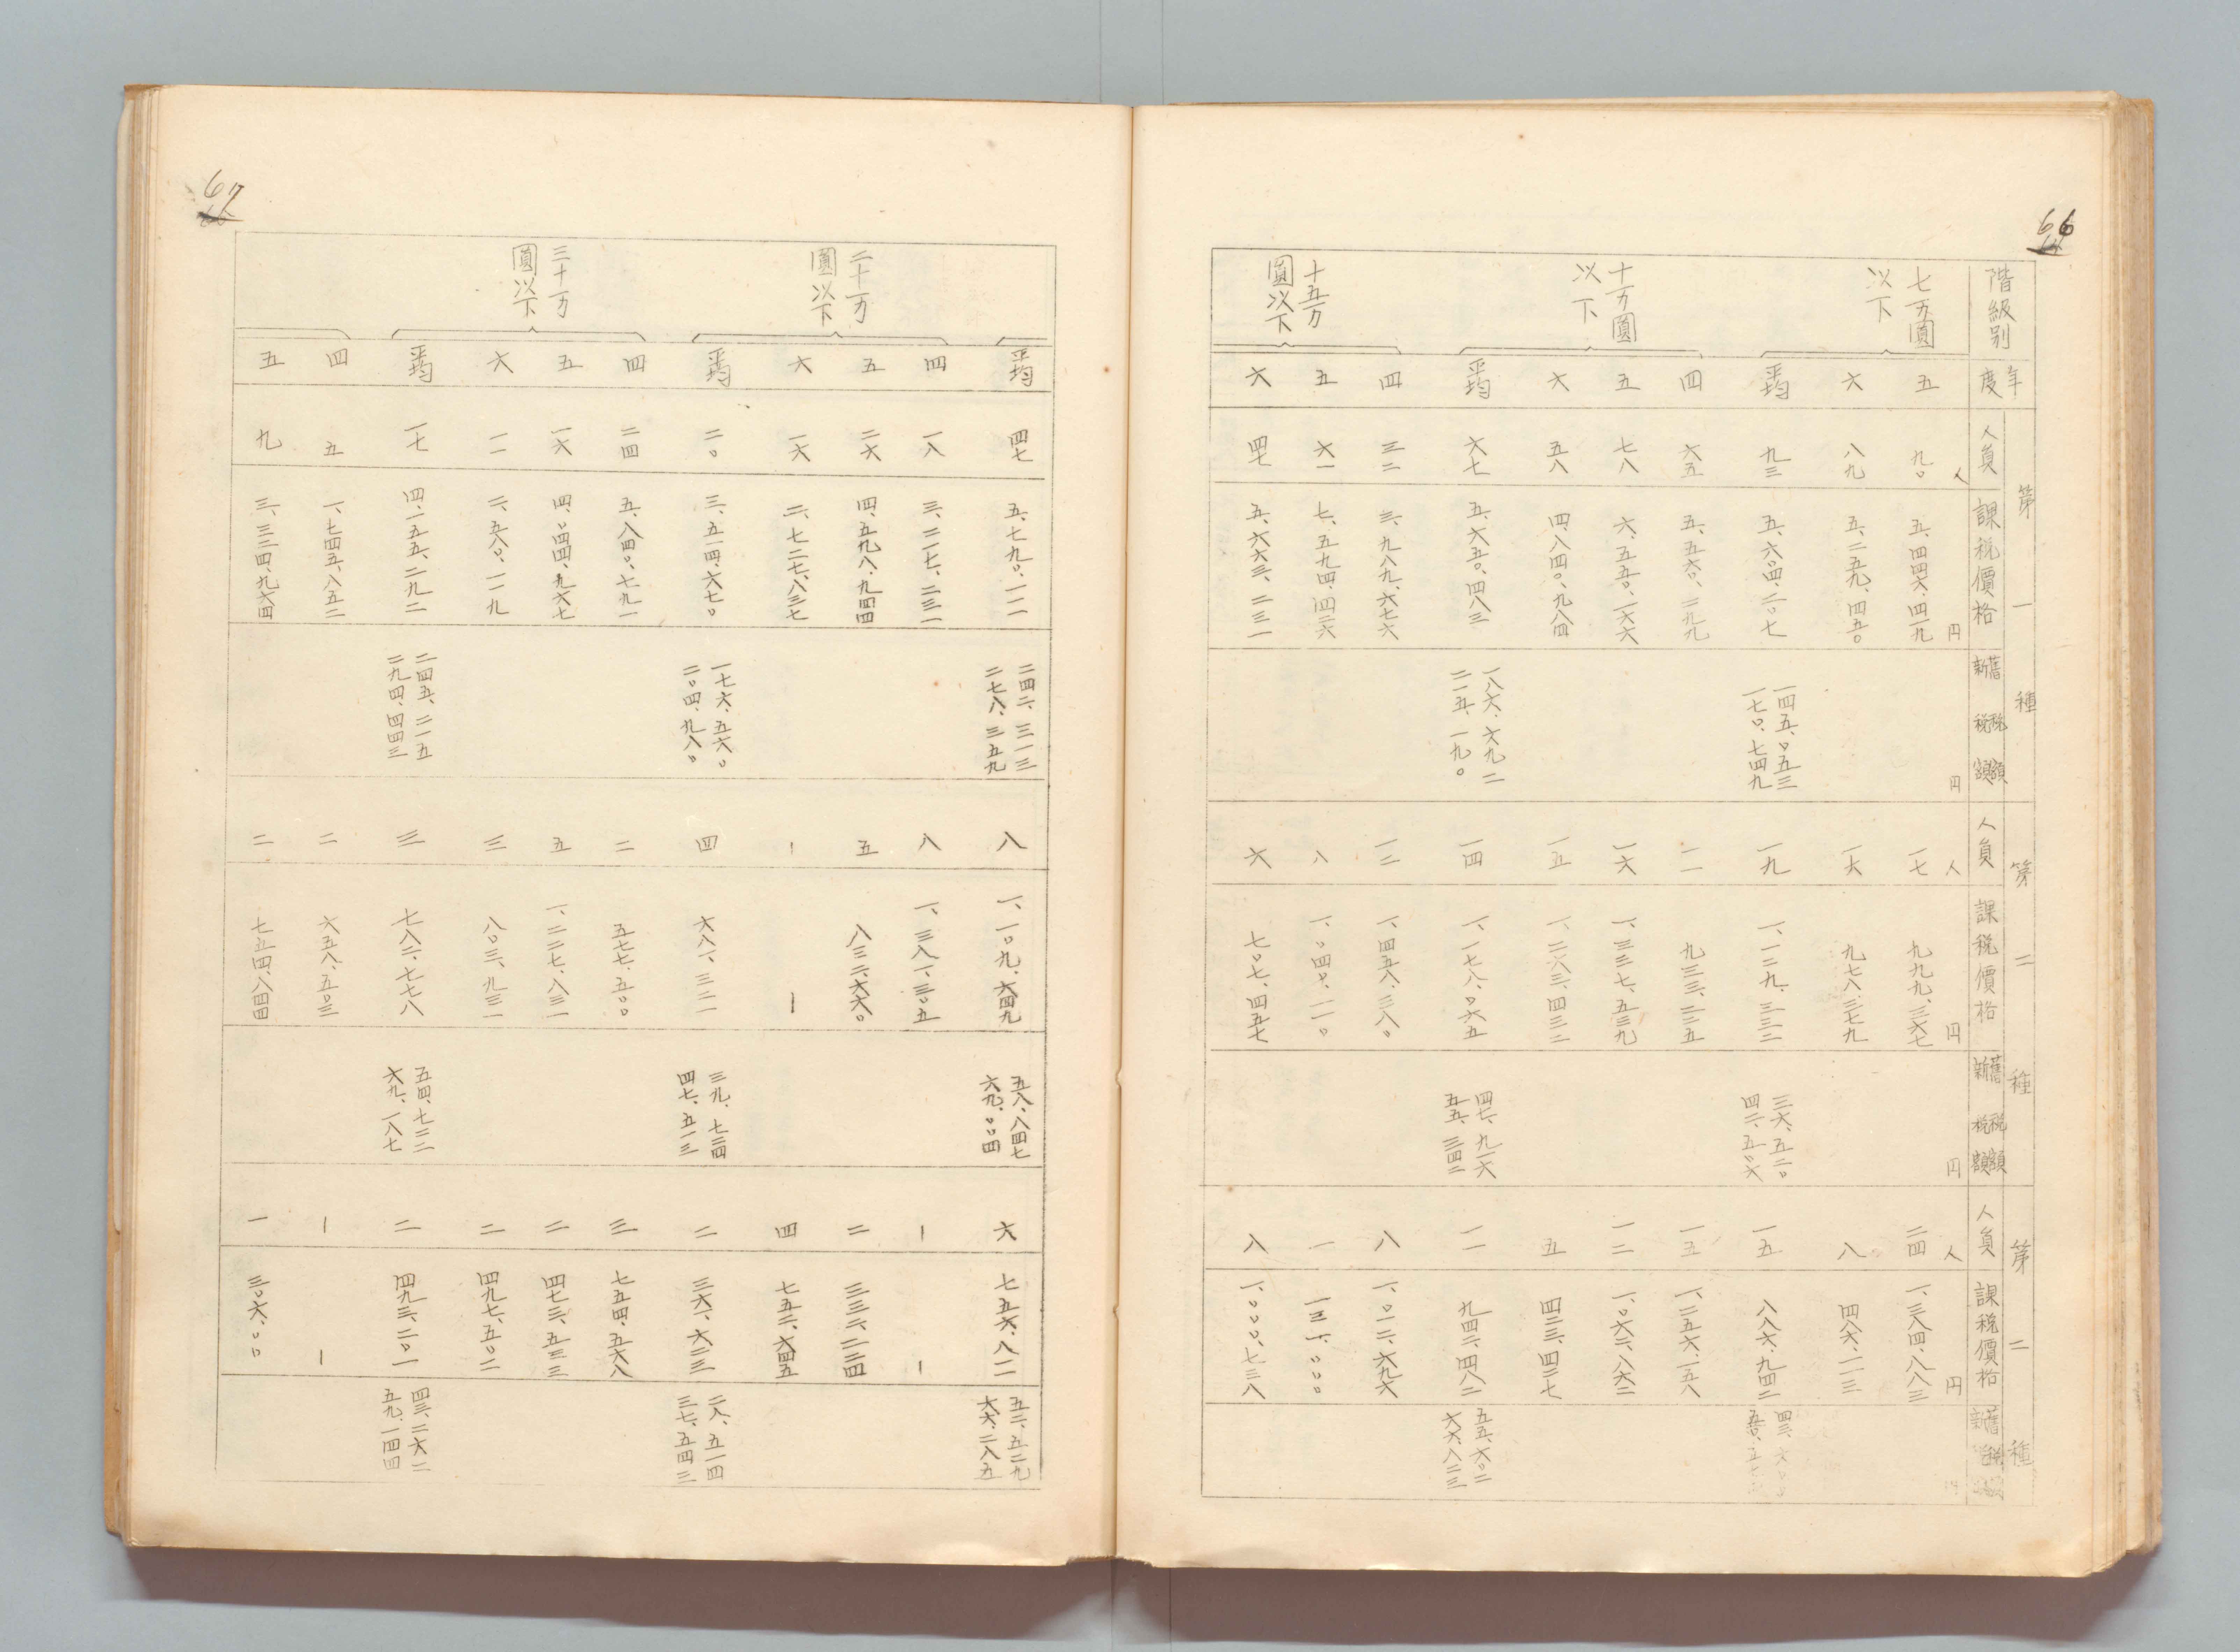 66
階級別
年度
第一種
人員
課税價格
舊税額
新税額
第二種
人員
課税價格
舊税額
新税額
第三種
人員
課税價格
人
円
円
人
円
円
人
円
七万圓
以下
五
九〇
五、四四六、四一九
一七
九九九、三六七
二四
一、三八四、八八三
六
八九
五、二五九、四五〇
一六
九七八、三七九
八
四八六、一一三
平均
九三
五、六〇四、二〇七
一四五、〇五三
一七〇、七四九
一九
一、一二九、三三二
三六、五二〇
四二、五〇六
一五
八八六、九四二
十万圓
以下
四
六五
五、五六〇、二九九
一一
九三三、二三五
一五
一、二五六、一五八
五
七八
六、五五〇、一六六
一六
一、三三七、五三九
一二
一、〇六二、八六二
六
五八
四、八四〇、九八四
一五
一、二六三、四三二
五
四二三、四二七
平均
六七
五、六五〇、四八三
一八六、六九二
二一五、一九〇
一四
一、一七八、〇六五
四七、九一六
五五、三四二
一一
九四二、四八二
五五、六〇二
六六、八二三
十五万
圓以下
四
三二
三、九八九、六七六
一二
一、四五八、三八〇
八
一、〇一二、六九六
五
六一
七、五九四、四二六
八
一、〇四〇、一一〇
一
一三一、〇〇〇
六
四七
五、六六三、二三一
六
七〇七、四五七
八
一、〇〇〇、七三八
67
平均
四七
五、七九〇、一一一
二四二、三一三
二七八、三五九
八
一、一〇九、六四九
五八、八四七
六九、〇〇四
六
七五六、八一一
五三、五二九
六六、二八五
二十万
圓以下
四
一八
三、二一七、二三一
八
一、三八一、三〇五
－
－
五
二六
四、五九八、九四四
五
八三二、六六〇
二
三三二、二二四
六
一六
二、七二七、八三七
－
－
四
七五二、六四五
平均
二〇
三、五一四、六七〇
一七六、五六〇
二〇四、九八〇
四
六八一、三二一
三九、七三四
四七、五一三
二
三六一、六二三
二八、五一四
三七、五四三
三十万
圓以下
四
二四
五、八四〇、七九一
二
五七七、五〇〇
三
七五四、五六八
五
一六
四、〇四四、九六七
五
一、二二七、八三一
二
四七三、五三三
六
一一
二、五八〇、一一九
三
八〇三、九三一
二
四九七、五〇二
平均
一七
四、一五五、二九二
二四五、二一五
二九四、四四三
三
七八二、七七八
五四、七三二
六九、一八七
二
四九三、二〇一
四三、二六二
五九、一四四
四
五
一、七四五、八五二
二
六五八、五〇三
－
－
五
九
三、三二四、九六四
二
七五四、八四四
一
三〇六、〇〇